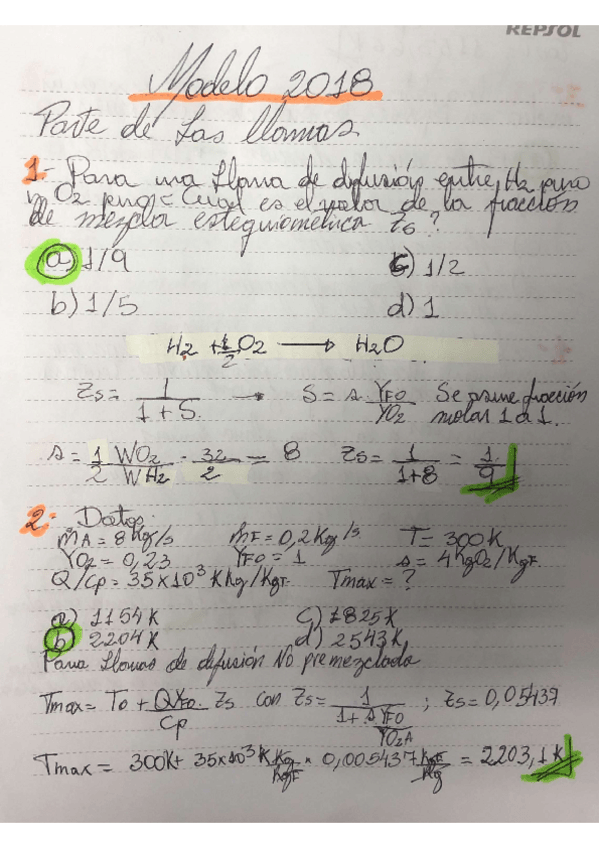 REPSOL
Modelo 2018
Parte de Las llamas
1- Para una llama de difusión entre H2 puro
y O2 puro ¿Cuál es el valor de la fracción
de mezcla estequiométrica Zs?
a) 1/9 c) 1/2
b) 1/5 d) 1
H2 + 1/2 O2 → H2O
Zs = 1/(1+S) → S = s YFO/YO2 Se pone fracción
molar 1 a 1.
s = 1/2 WO2/WH2 = 32/2 = 8 Zs = 1/(1+8) = 1/9
2- Datos:
ṁA = 8 Kg/s ṁF = 0,2 Kg/s T = 300K
YO2 = 0,23 YFO = 1 s = 4 KgO2/KgF
Q/Cp = 35x10³ K Kg/KgF Tmax = ?
a) 1154K c) 1825K
b) 2204K d) 2543K
Para llamas de difusión No premezclada
Tmax = To + QYFO/Cp · Zs con Zs = 1/(1 + s YFO/YO2A) ; Zs = 0,05437
Tmax = 300K + 35x10³ K Kg/KgF × 0,005437 KgF/Kg = 2203,1K